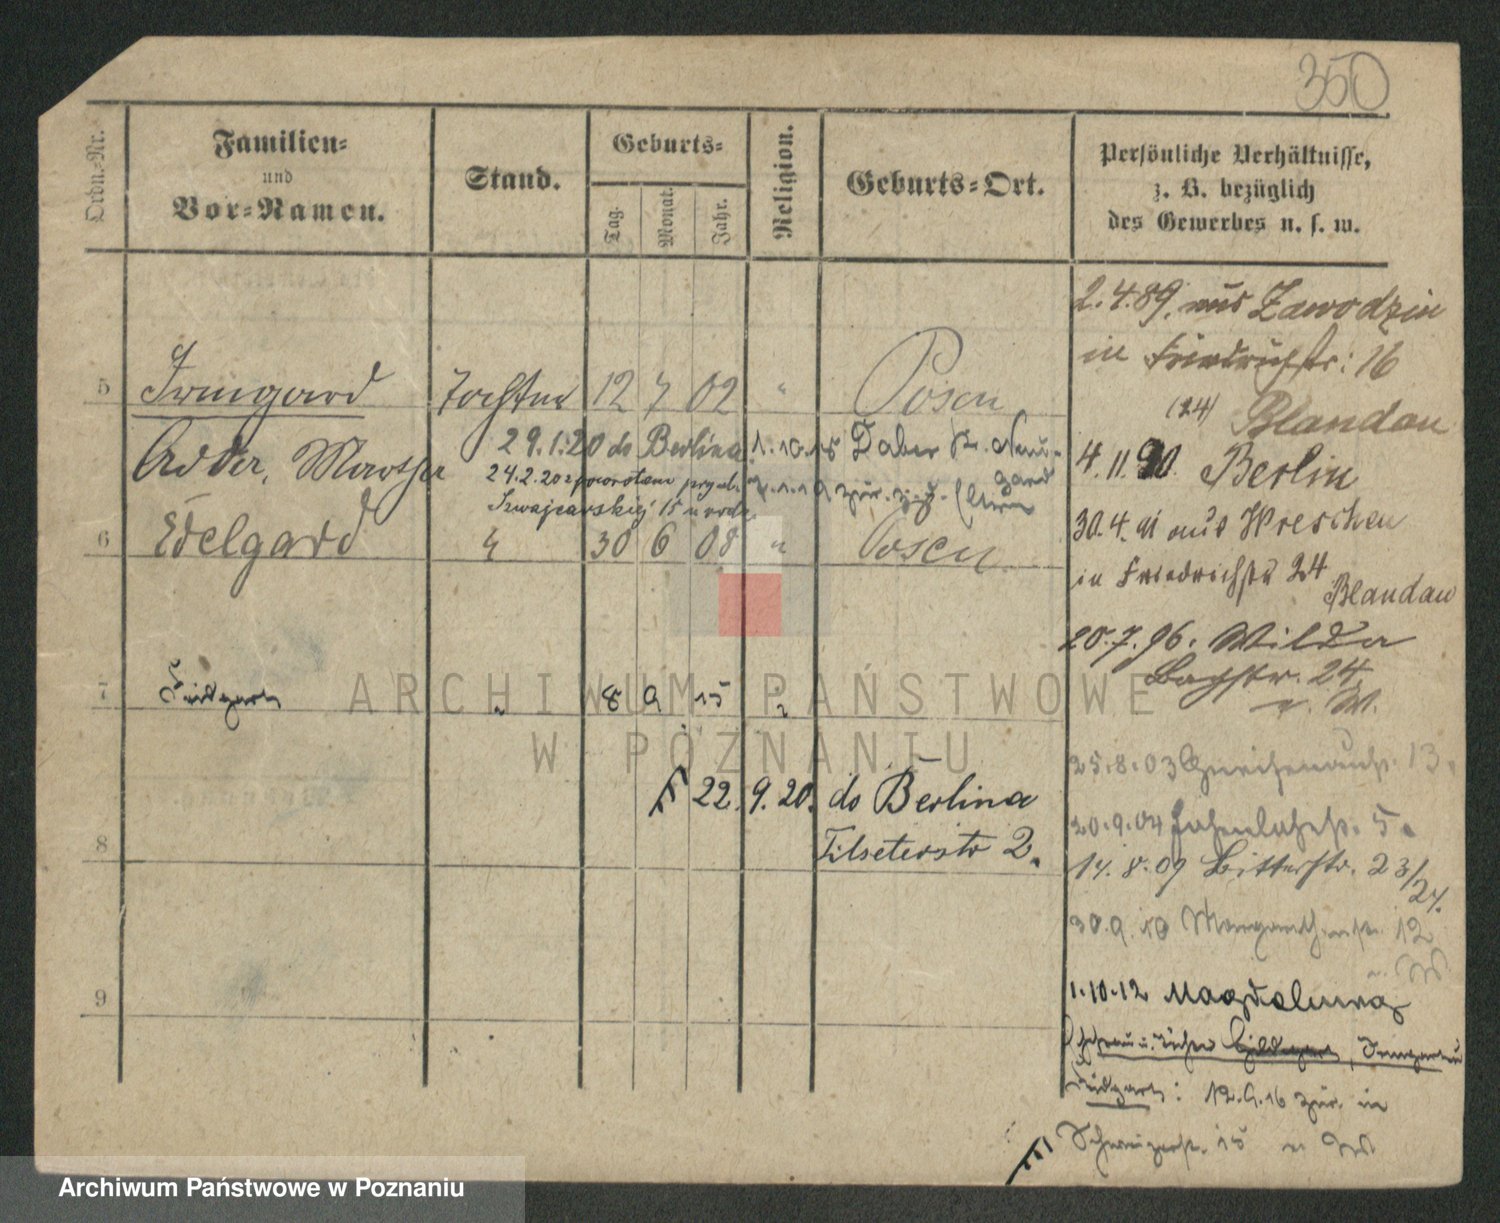 350
Ordn.-Nr.
Familien-
und
Vor-Namen.
Stand.
Geburts-
Tag.
Monat.
Jahr.
Religion.
Geburts-Ort.
Persönliche Verhältnisse,
z. B. bezüglich
des Gewerbes u. s. w.
2.4.89. aus Zawodzin
in Friedrichstr: 16
(24) Blandau
4.11.90. Berlin
30.4.91 aus Wreschen
in Friedrichstr 24
Blandau
20.7.96. Wilda
Bachstr. 24
v. W.
25.8.03 13.
20.9.04 5.
14.8.09 Ritterstr. 23/24.
30.9.10 Margarethenstr. 12
1.10.12
Irmgard u
Luidgard: 12.9.16 zur. in
15
5 Irmgard Tochter 12 7 02 " Posen
29.1.20 do Berlina 1.10.15 Daber Kr. Neu-
gard
24.2.20 z powrotem
Szwajcarskiej 15 u
zur. z. d. Eltern
Martha
6 Edelgard " 30 6 08 " Posen
7 Luidgard " 8 9 15 "
22.9.20. do Berlina
Tilseterstr 2.
8
9
ARCHIWUM PAŃSTWOWE
W POZNANIU
Archiwum Państwowe w Poznaniu